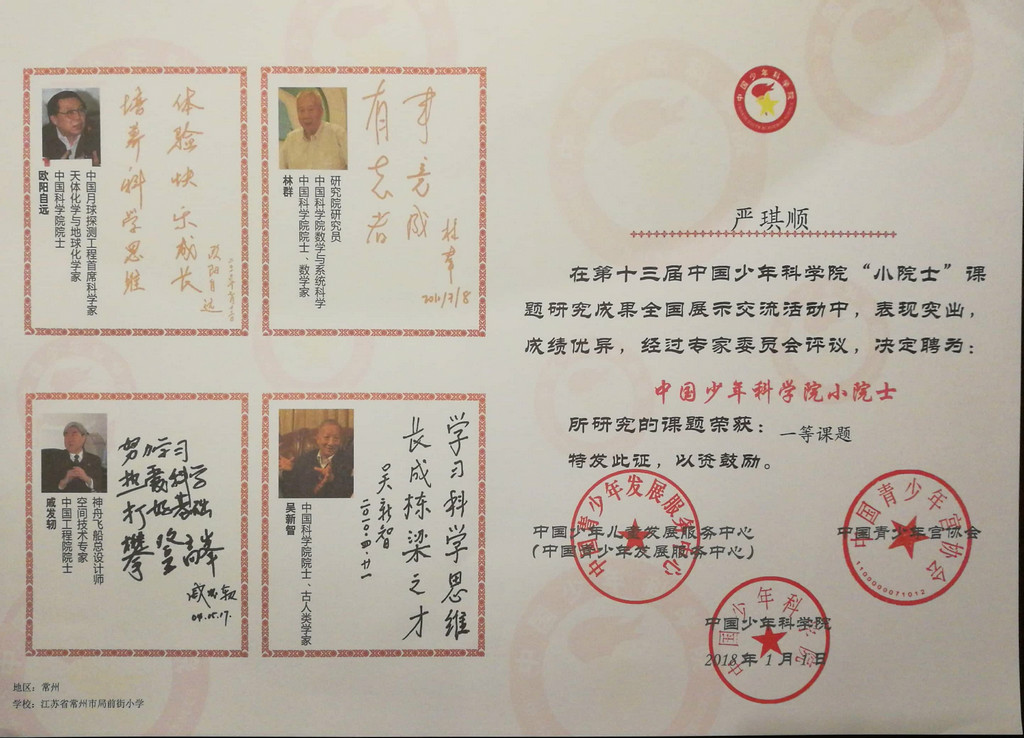 体验快乐成长
培养科学思维
欧阳自远
中国月球探测工程首席科学家
天体化学与地球化学家
中国科学院院士
欧阳自远
有志者
事竟成
林群
2011/7/8
研究院研究员
中国科学院数学与系统科学
中国科学院院士、数学家
林群
努力学习
热爱科学
打好基础
攀登高峰
戚发轫
神舟飞船总设计师
空间技术专家
中国工程院院士
戚发轫
学习科学思维
长成栋梁之才
吴新智
二〇一〇.四.廿一
中国科学院院士、古人类学家
吴新智
地区：常州
学校：江苏省常州市局前街小学
中国少年科学院
严琪顺
在第十三届中国少年科学院“小院士”课
题研究成果全国展示交流活动中，表现突出，
成绩优异，经过专家委员会评议，决定聘为：
中国少年科学院小院士
所研究的课题荣获：一等课题
特发此证，以资鼓励。
中国少年儿童发展服务中心
（中国青少年发展服务中心）
中国青少年发展服务中心
中国青少年宫协会
中国青少年宫协会
1100000071012
中国少年科学院
2018年1月1日
中国少年科学院